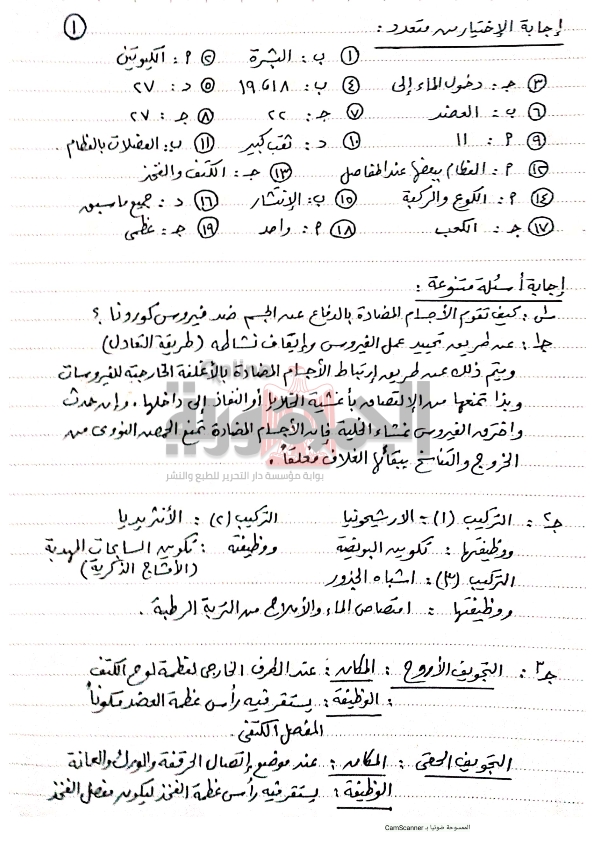 ١
إجابة الإختيار من متعدد :
١ ب : البشرة ٢ ٩ : الكيوتين
٣ جـ : دخول الماء إلى ٤ ب : ١٨ ، ١٩ ٥ د : ٢٧
٦ ب : العضد ٧ جـ : ٢٢ ٨ جـ : ٢٧
٩ ٩ : ١١ ١٠ د : ثقب كبير ١١ ب : العضلات بالعظام .
١٢ ٩ : العظام ببعضها عند المفاصل ١٣ جـ : الكتف والفخذ
١٤ ٩ : الكوع والركبة ١٥ ب : الإنتشار ١٦ د : جميع ما سبق
١٧ جـ : الكعب ١٨ ٩ : واحد ١٩ جـ : عظمى
إجابة أسئلة متنوعة :
س١ : كيف تقوم الأجسام المضادة بالدفاع عن الجسم ضد فيروس كورونا ؟
جـ١ : عن طريق تحييد عمل الفيروس وإيقاف نشاطه (طريقة التعادل)
ويتم ذلك عن طريق إرتباط الأجسام المضادة بالأغلفة الخارجية للفيروسات
وبذا تمنعها من الإلتصاق بأغشية الخلايا أو النفاذ إلى داخلها . وإن حدث
واخترق الفيروس غشاء الخلية فإن الأجسام المضادة تمنع الحمض النووى من
الخروج والتناسخ ببقائها الغلاف مغلقاً .
الجمهورية
بوابة مؤسسة دار التحرير للطبع والنشر
جـ٢ : التركيب (١) : الارشيجونيا التركيب (٢) : الأنثريديا
ووظيفتها : تكوين البويضة ووظيفته : تكوين السابحات المهدبة
التركيب (٣) : اشباه الجذور (الأمشاج الذكرية)
ووظيفتها : امتصاص الماء والأملاح من التربة الرطبة .
جـ٣ : التجويف الأروح : المكان : عند الطرف الخارجى لعظمة لوح الكتف
الوظيفة : يستقر فيه رأس عظمة العضد مكوناً
المفصل الكتفى .
التجويف الحقى : المكان : عند موضع إتصال الحرقفة والورك والعانة
الوظيفة : يستقر فيه رأس عظمة الفخذ ليكون مفصل الفخذ
الممسوحة ضوئيا بـ CamScanner